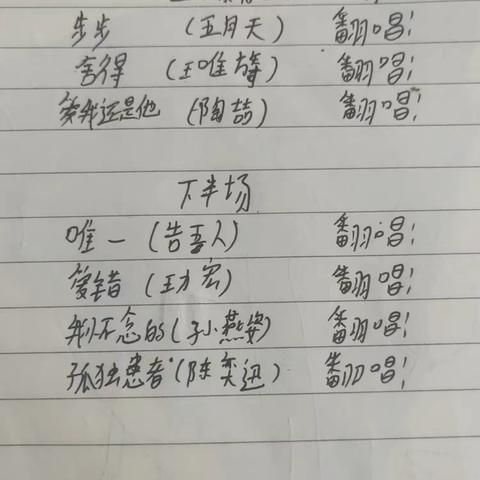 步步 (五月天) 翻唱!
舍得 (王唯 翻唱!
爱我还是他 (陶喆) 翻唱!
下半场
唯一 (告五人) 翻唱!
爱错 (王力宏) 翻唱!
我怀念的 (孙燕姿) 翻唱!
孤独患者 (陈奕迅) 翻唱!